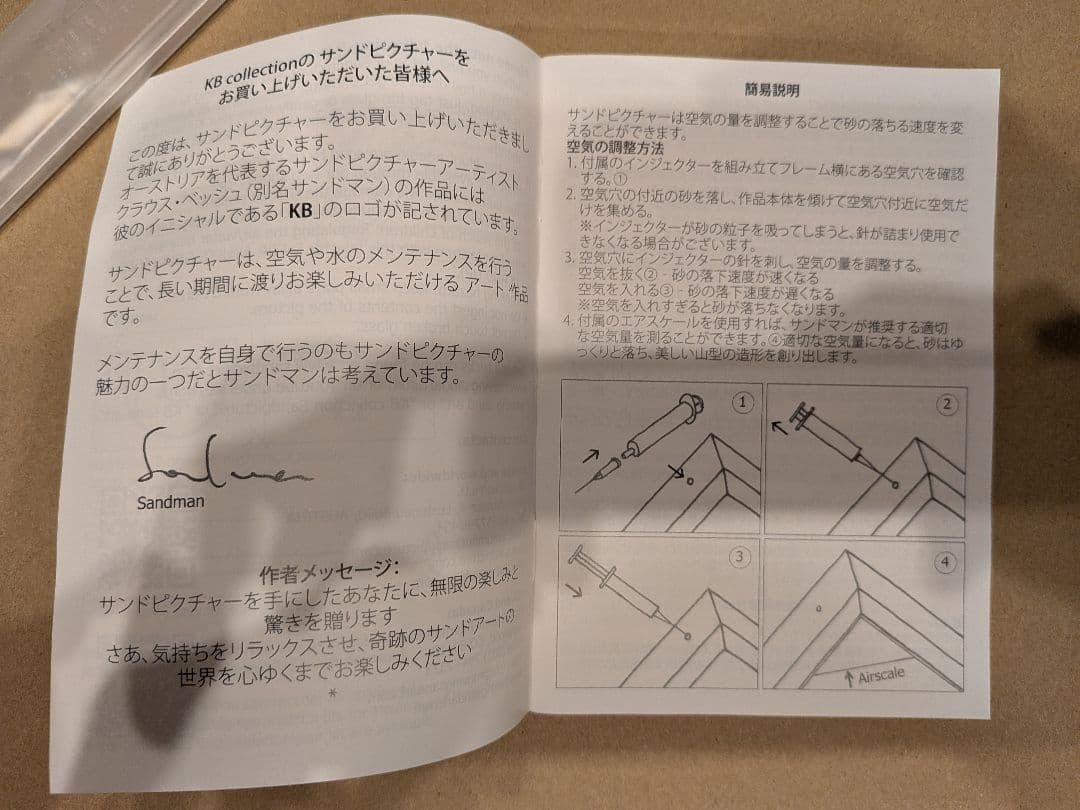 KB collectionの サンドピクチャーを
お買い上げいただいた皆様へ
この度は、サンドピクチャーをお買い上げいただきまし
て誠にありがとうございます。
オーストリアを代表するサンドピクチャーアーティスト
クラウス・ベッシュ（別名サンドマン）の作品には
彼のイニシャルである「KB」のロゴが記されています。
サンドピクチャーは、空気や水のメンテナンスを行う
ことで、長い期間に渡りお楽しみいただける アート 作品
です。
メンテナンスを自身で行うのもサンドピクチャーの
魅力の一つだとサンドマンは考えています。
Sandman
作者メッセージ：
サンドピクチャーを手にしたあなたに、無限の楽しみと
驚きを贈ります
さあ、気持ちをリラックスさせ、奇跡のサンドアートの
世界を心ゆくまでお楽しみください
*
簡易説明
サンドピクチャーは空気の量を調整することで砂の落ちる速度を変
えることができます。
空気の調整方法
1. 付属のインジェクターを組み立てフレーム横にある空気穴を確認
する。①
2. 空気穴の付近の砂を落し、作品本体を傾けて空気穴付近に空気だ
けを集める。
※インジェクターが砂の粒子を吸ってしまうと、針が詰まり使用で
きなくなる場合がございます。
3. 空気穴にインジェクターの針を刺し、空気の量を調整する。
空気を抜く② - 砂の落下速度が速くなる
空気を入れる③ - 砂の落下速度が遅くなる
※空気を入れすぎると砂が落ちなくなります。
4. 付属のエアスケールを使用すれば、サンドマンが推奨する適切
な空気量を測ることができます。④適切な空気量になると、砂はゆ
っくりと落ち、美しい山型の造形を創り出します。
①
②
③
④
Airscale